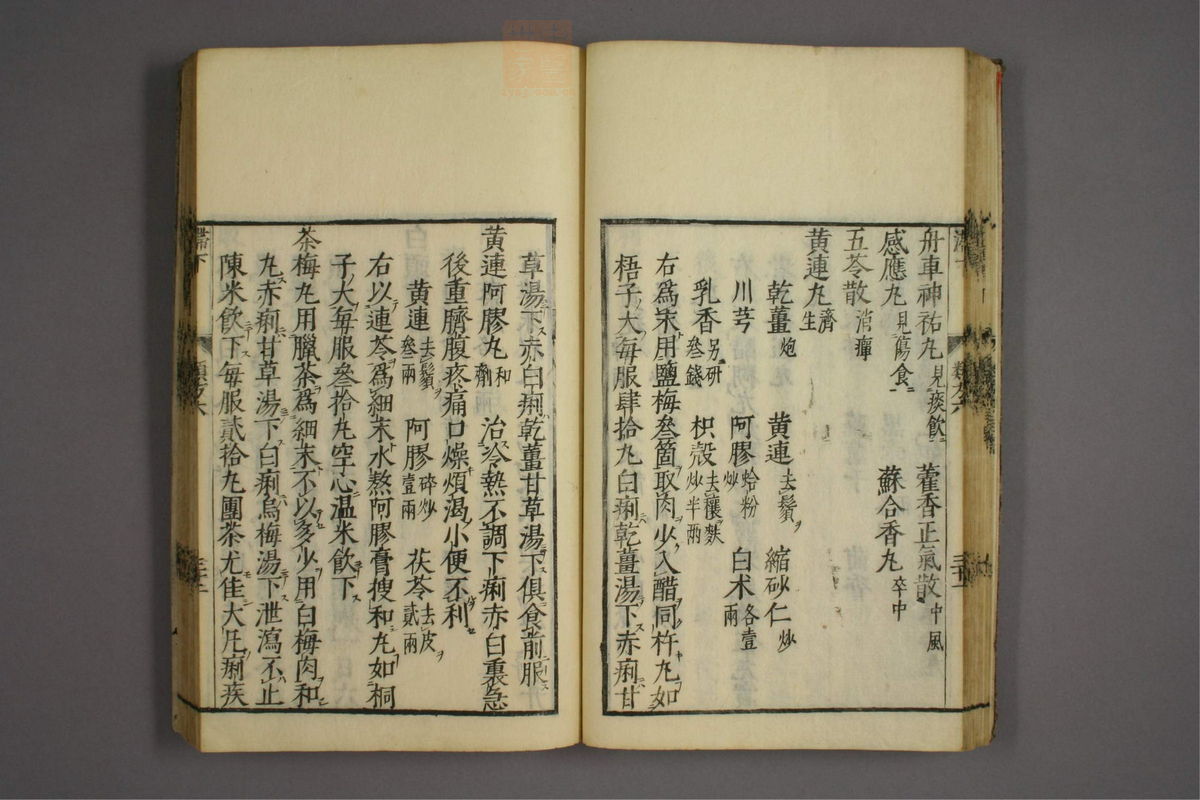 舟車神祐丸見痰飲 藿香正氣散中風
感應丸見傷食 蘇合香丸卒中
五苓散消癉
黄連丸濟生
乾薑炮 黄連去鬚 縮砂仁炒
川芎 阿膠蛤粉炒 白术各壹兩
乳香另研叄錢 枳殻去穰麩炒半兩
右爲末用鹽梅叄箇取肉少入醋同杵丸如
梧子大每服肆拾丸白痢乾薑湯下赤痢甘
草湯下赤白痢乾薑甘草湯下俱食前服
黄連阿膠丸和劑 治冷熱不調下痢赤白裏急
後重臍腹疼痛口燥煩渴小便不利
黄連去鬚叄兩 阿膠碎炒壹兩 茯苓去皮貳兩
右以連苓爲細末水熬阿膠膏搜和丸如桐
子大每服叄拾丸空心温米飲下
茶梅丸用臘茶爲細末不以多少用白梅肉和
丸赤痢甘草湯下白痢烏梅湯下泄瀉不止
陳米飲下每服貳拾丸團茶尤佳大凡痢疾